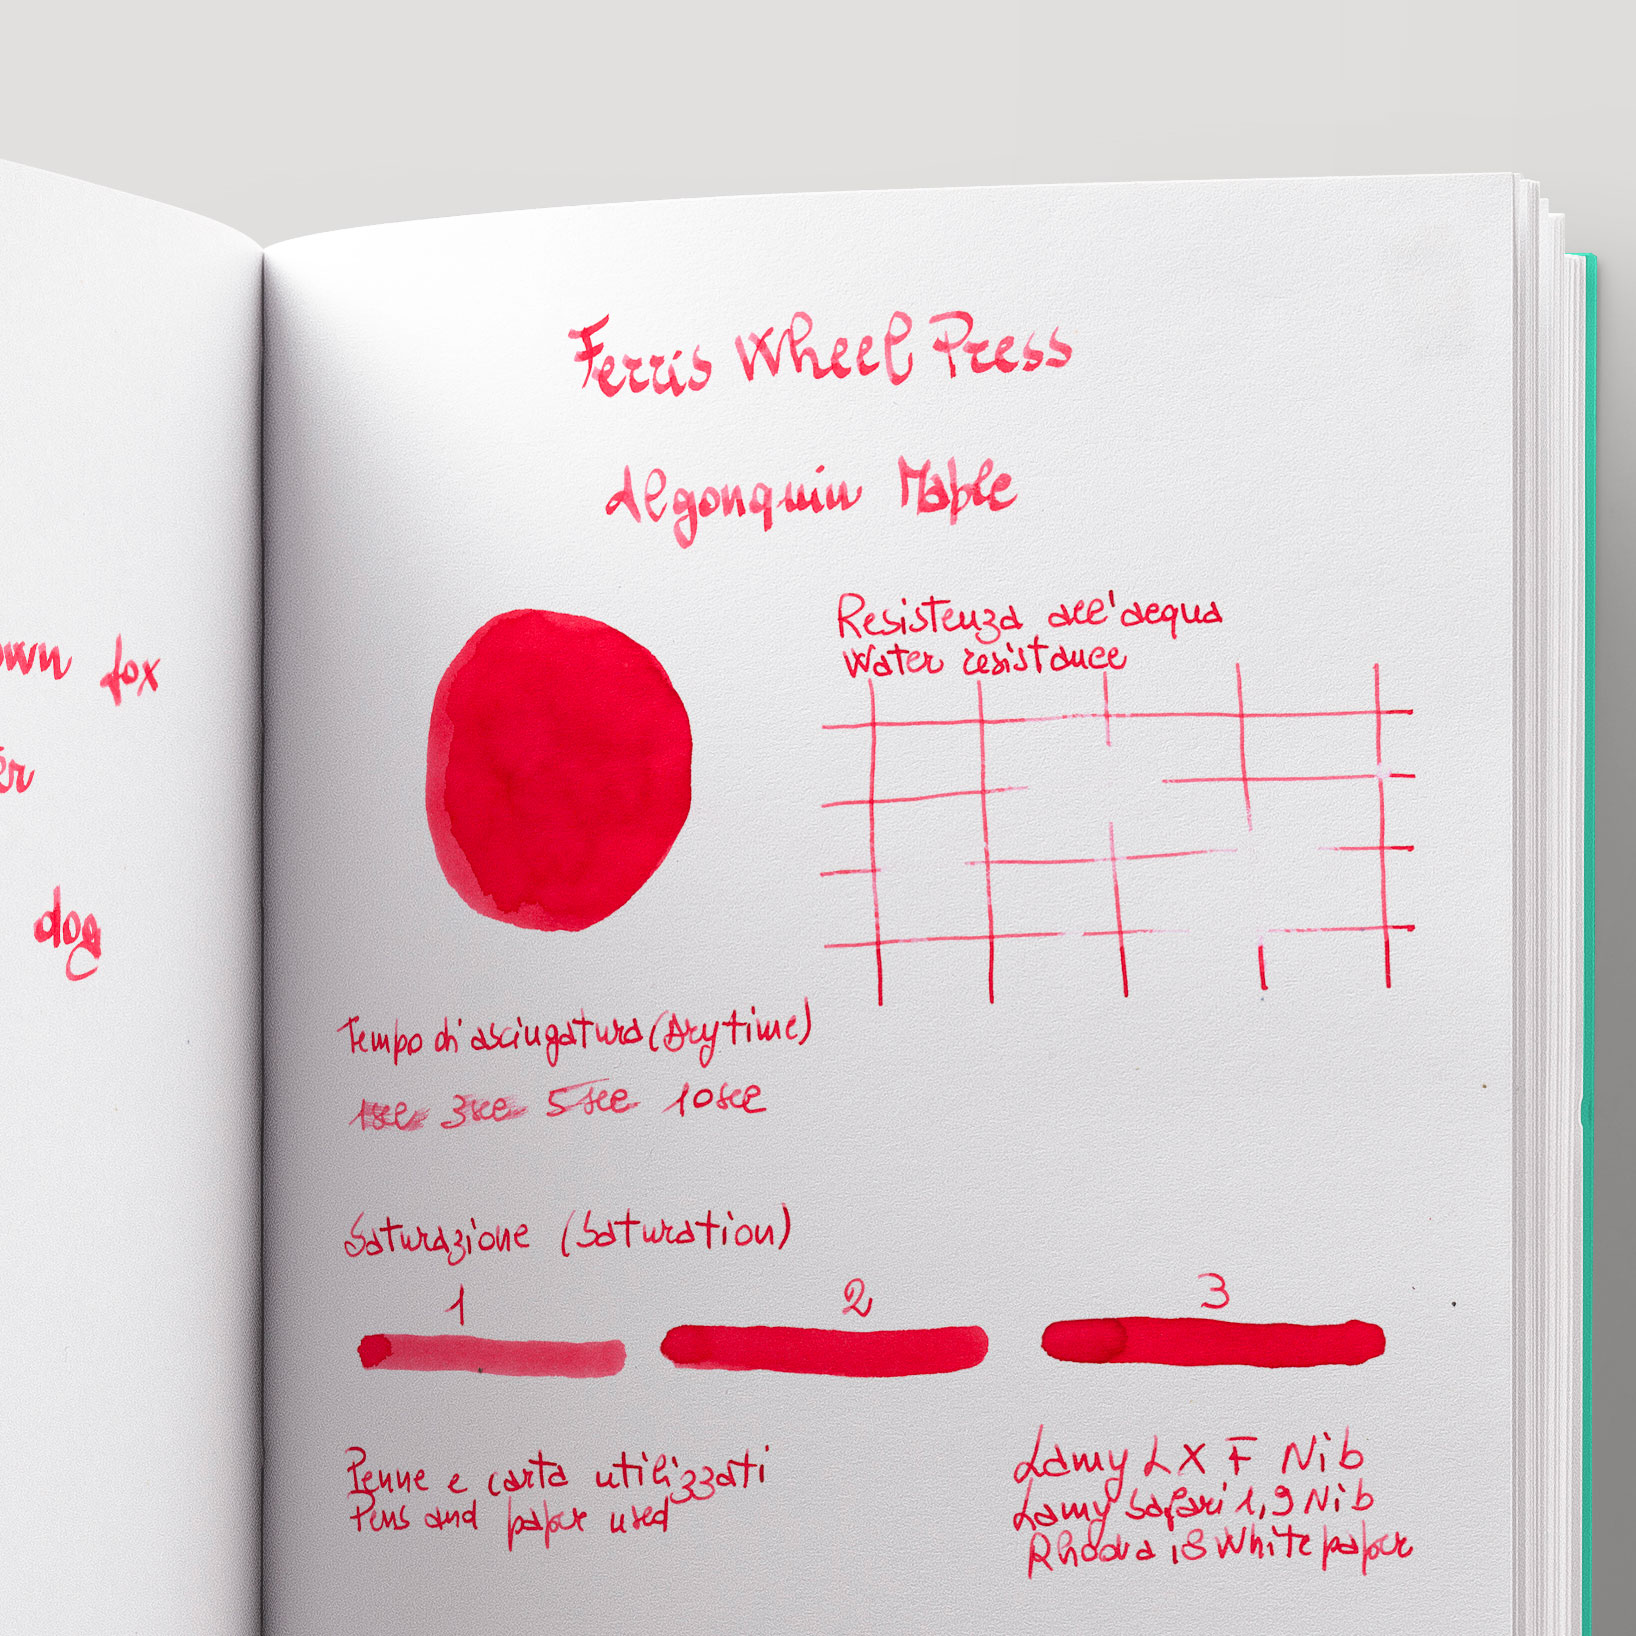 own fox
er
dog
Ferris Wheel Press
Algonquin Maple
Resistenza all'acqua
Water resistance
Tempo di asciugatura (Dry time)
1sec 3sec 5sec 10sec
Saturazione (Saturation)
1 2 3
Penne e carta utilizzati
Pens and paper used
Lamy LX F Nib
Lamy Safari 1,9 Nib
Rhodia 18 White paper